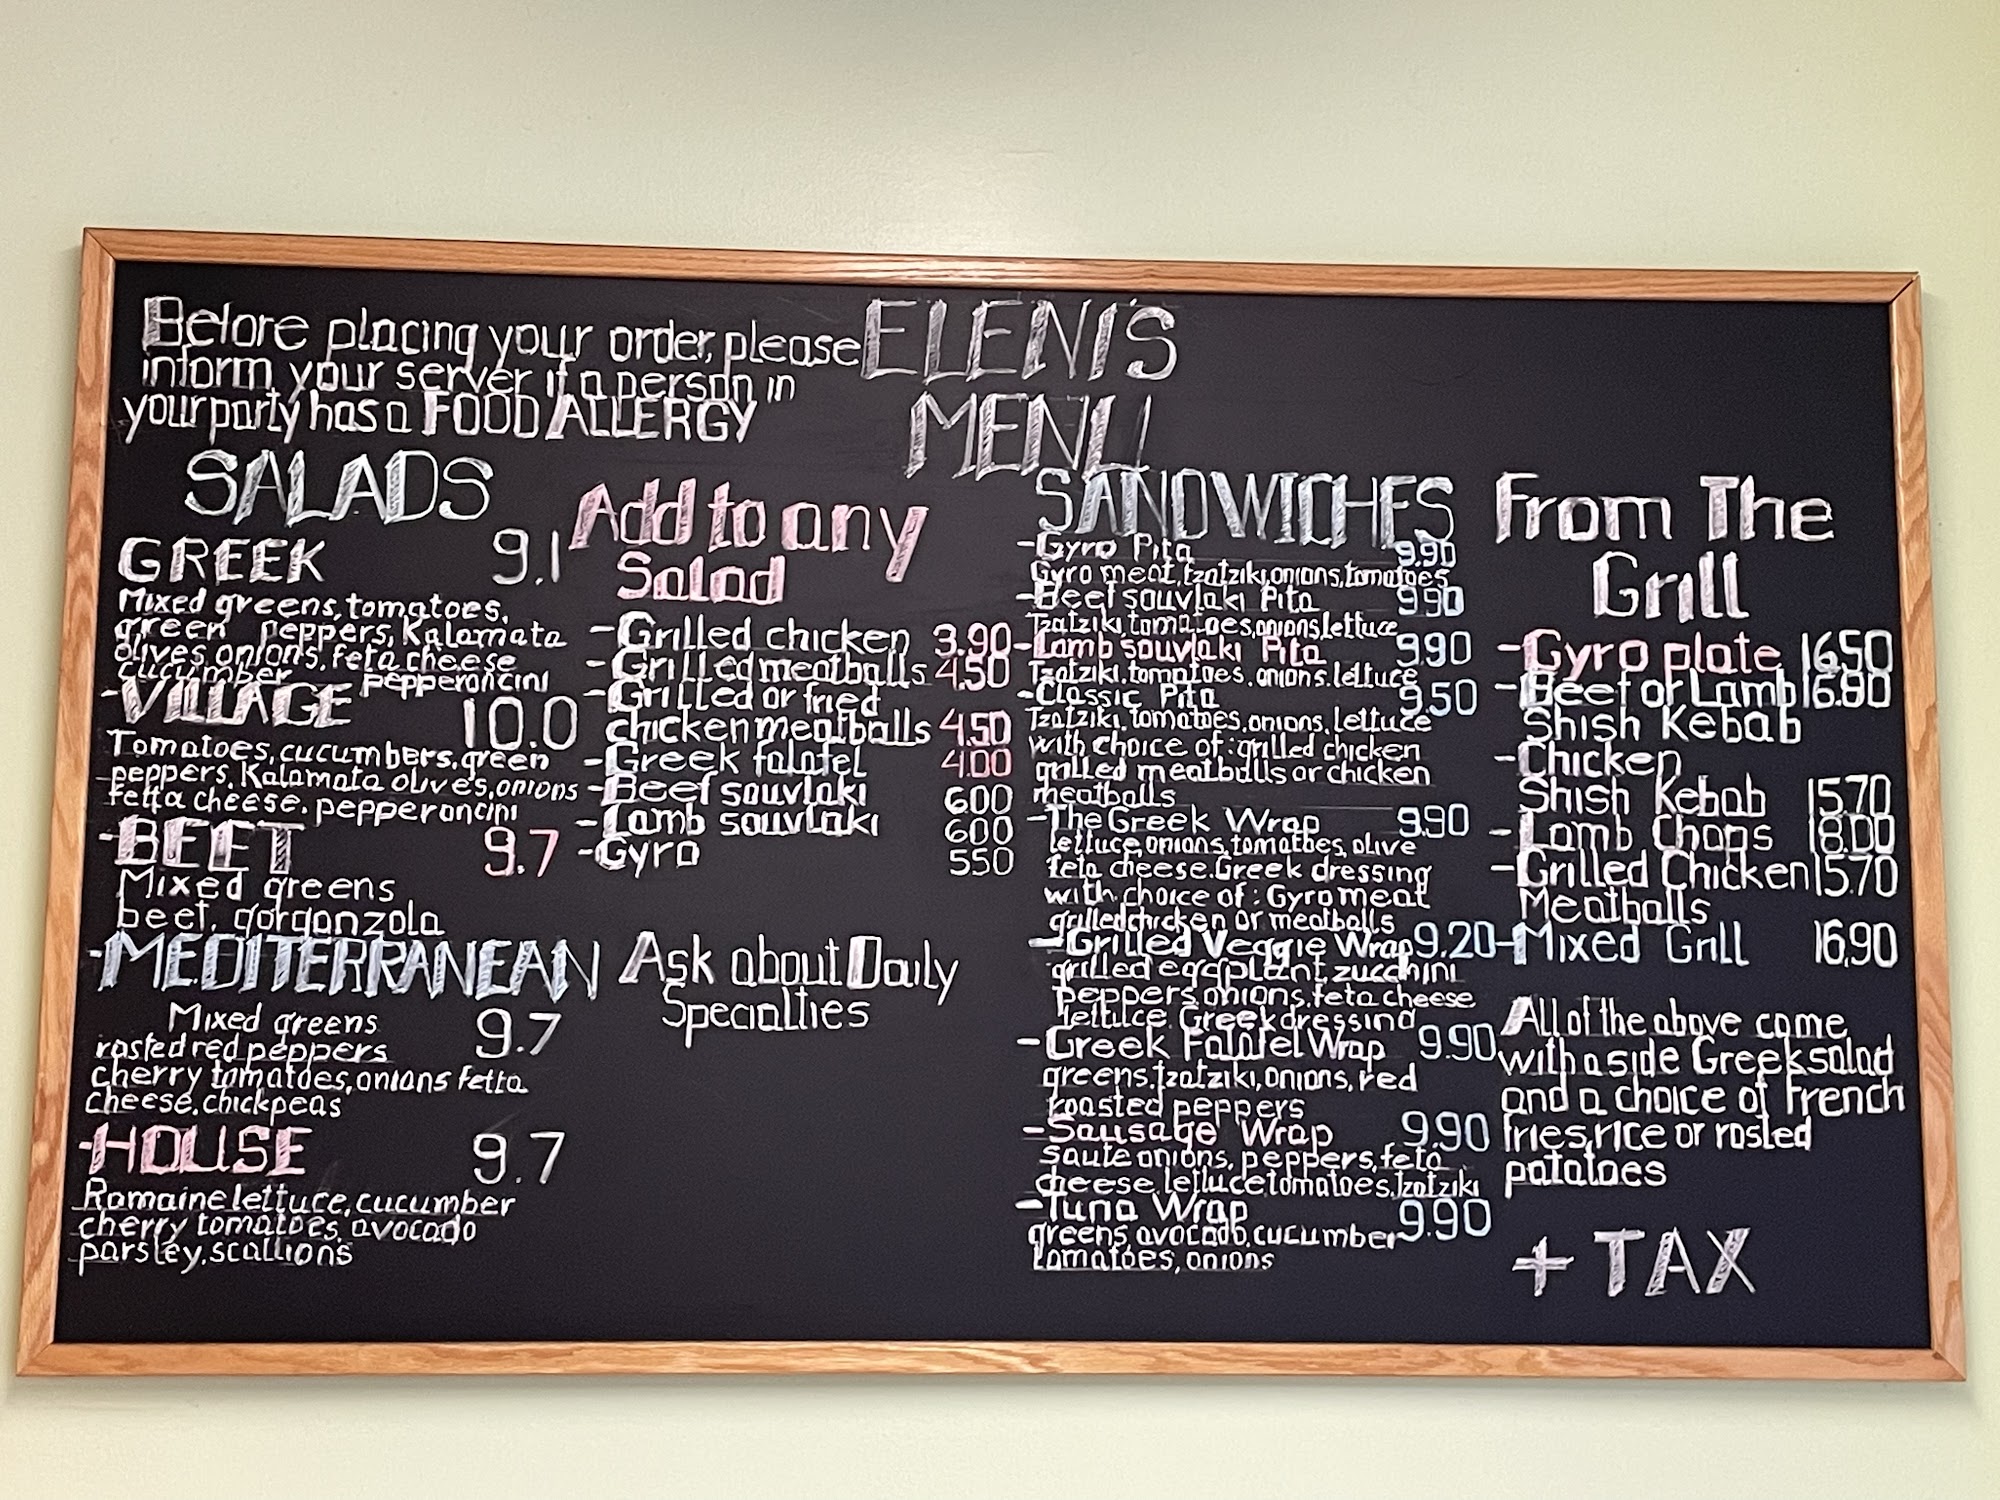 Before placing your order, please
inform your server if a person in
your party has a FOOD ALLERGY
ELENI'S
MENU
SALADS
GREEK 9.1
Mixed greens, tomatoes,
green peppers, Kalamata
olives, onions, feta cheese
cucumber pepperoncini
-VILLAGE 10.0
Tomatoes, cucumbers, green
peppers, Kalamata olives, onions
fetta cheese, pepperoncini
-BEET 9.7
Mixed greens
beet, gorganzola
-MEDITERRANEAN
Mixed greens 9.7
rosted red peppers
cherry tomatoes, onions fetta
cheese, chickpeas
-HOUSE 9.7
Romaine lettuce, cucumber
cherry tomatoes, avocado
parsley, scallions
Add to any
Salad
-Grilled chicken 3.90
-Grilled meatballs 4.50
-Grilled or fried
chicken meatballs 4.50
-Greek falafel 4.00
-Beef souvlaki 600
-Lamb souvlaki 600
-Gyro 550
Ask about Daily
Specialties
SANDWICHES
-Gyro Pita 9.90
Gyro meat, tzatziki, onions, tomatoes
-Beef souvlaki Pita 9.90
Tzatziki, tomatoes, onions, lettuce
-Lamb souvlaki Pita 9.90
Tzatziki, tomatoes, onions, lettuce
-Classic Pita 9.50
Tzatziki, tomatoes, onions, lettuce
with choice of: grilled chicken
grilled meatballs or chicken
meatballs
-The Greek Wrap 9.90
lettuce, onions, tomatoes, olive
feta cheese, Greek dressing
with choice of: Gyro meat
grilled chicken or meatballs
-Grilled Veggie Wrap 9.20
grilled eggplant, zucchini
peppers, onions, feta cheese
lettuce, Greek dressing
-Greek Falafel Wrap 9.90
greens, tzatziki, onions, red
roasted peppers
-Sausage Wrap 9.90
saute onions, peppers, feta
cheese, lettuce tomatoes, tzatziki
-Tuna Wrap 9.90
greens, avocado, cucumber
tomatoes, onions
From The
Grill
-Gyro plate 16.50
-Beef or Lamb 16.80
Shish Kebab
-Chicken
Shish Kebab 15.70
-Lamb Chops 18.00
-Grilled Chicken 15.70
Meatballs
-Mixed Grill 16.90
All of the above come
with a side Greek salad
and a choice of French
fries, rice or rosted
potatoes
+ TAX